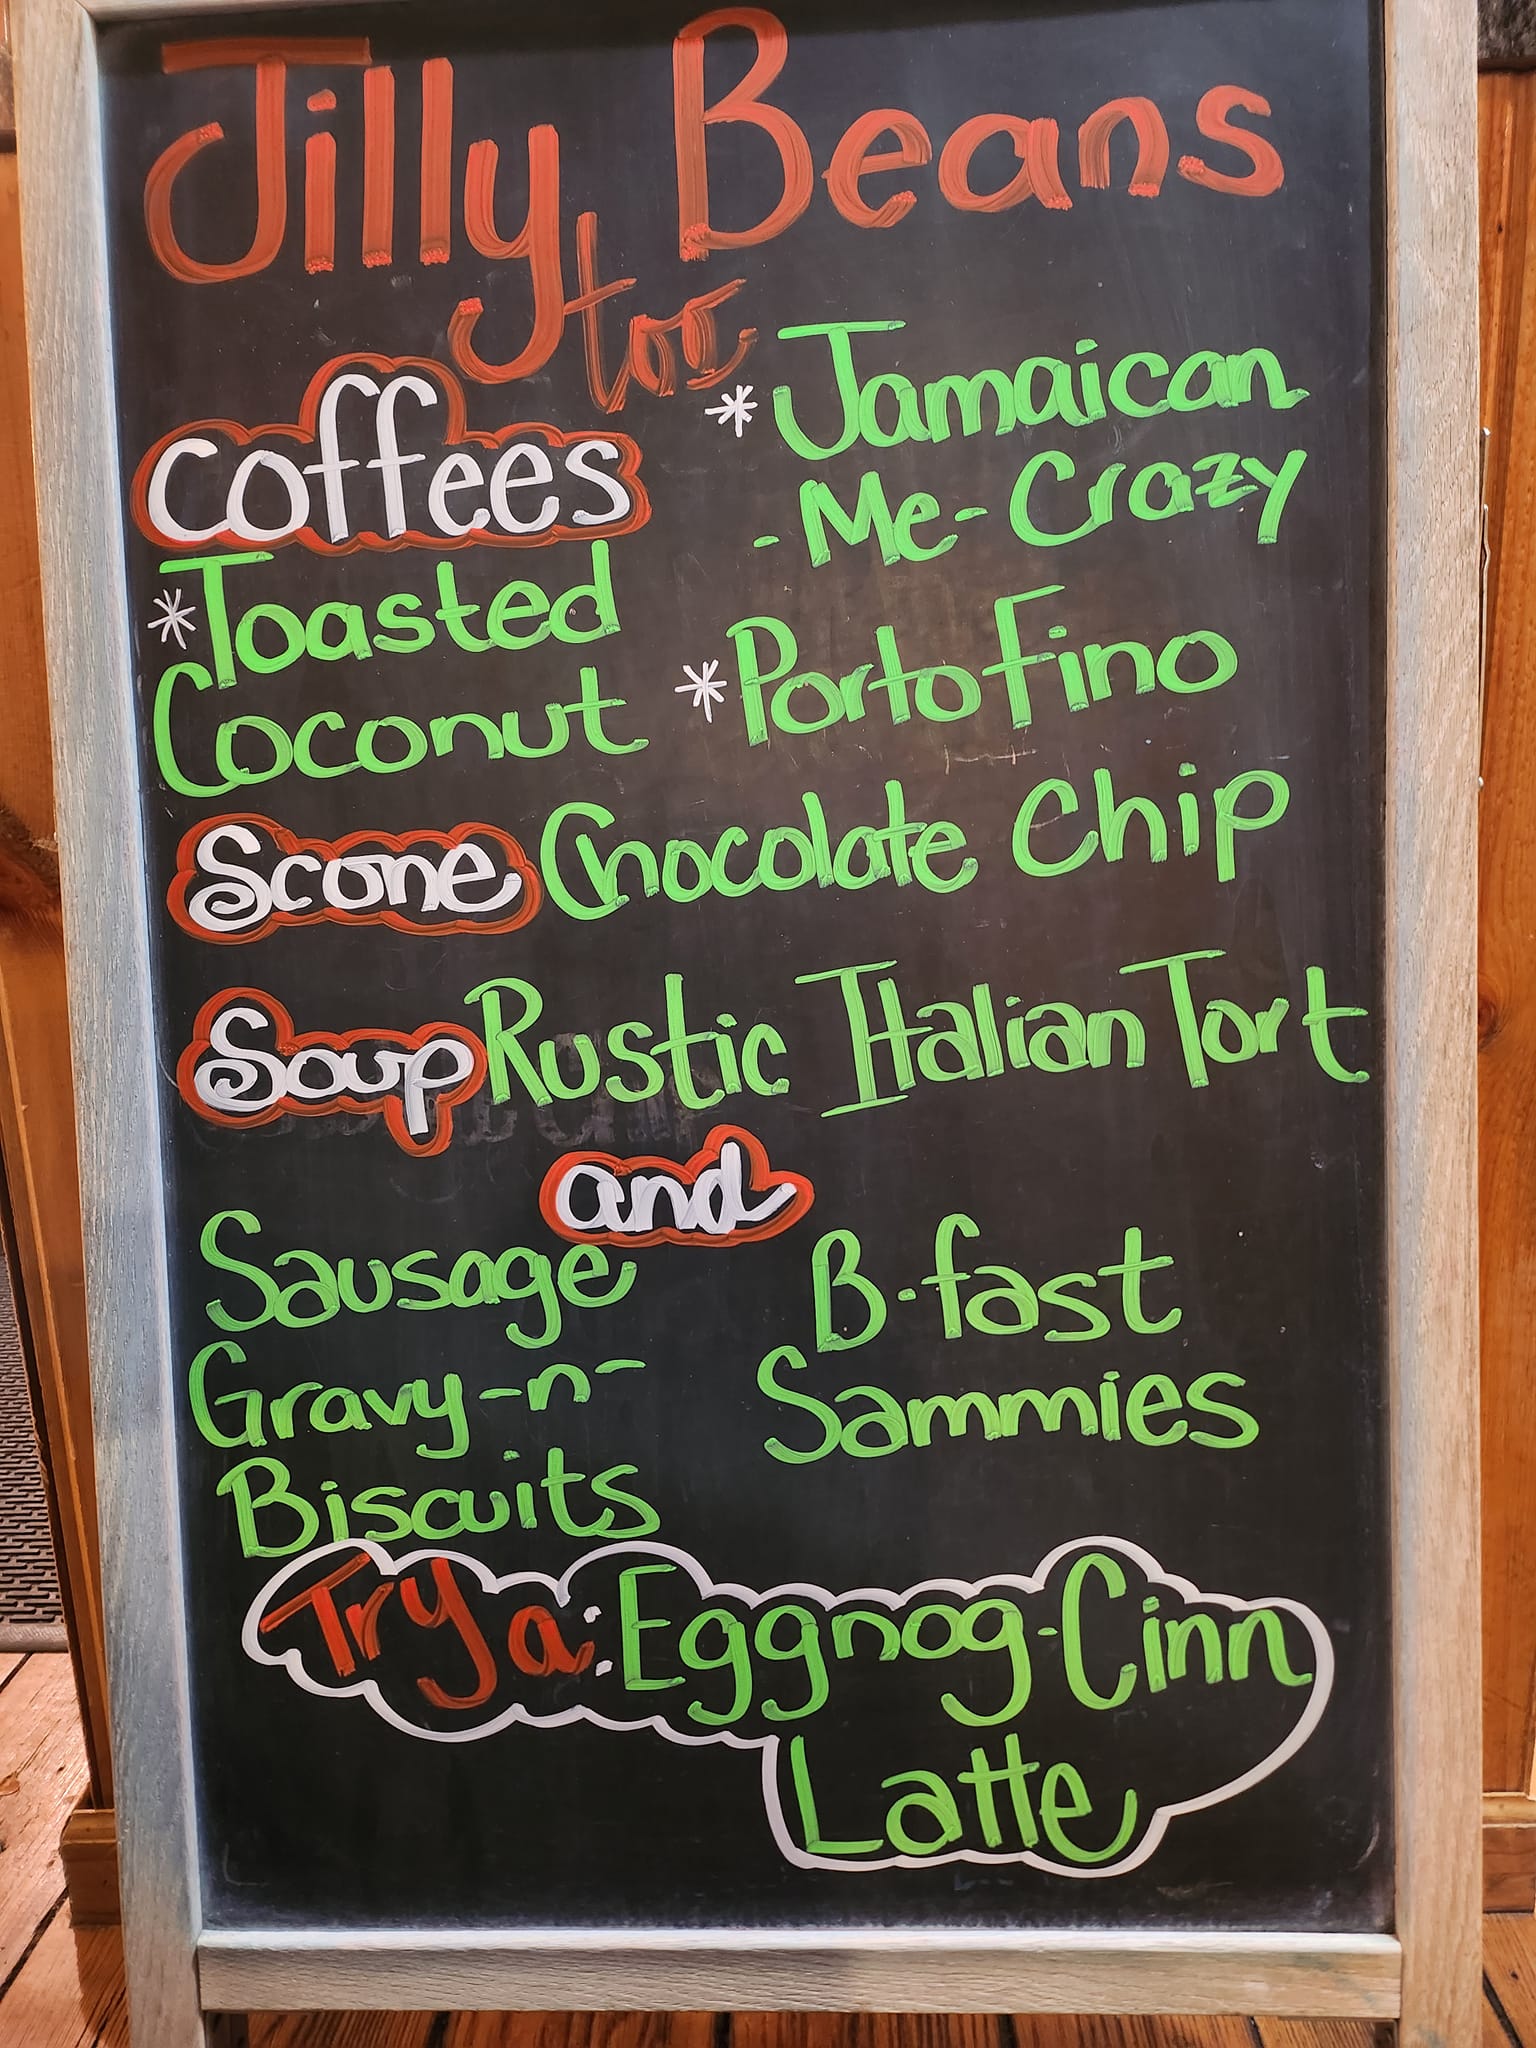 Jilly Beans
too
Coffees
*Toasted
Coconut
*Jamaican
-Me-Crazy
*Portofino
Scone Chocolate Chip
Soup Rustic Italian Tort
and
Sausage
Gravy-n-
Biscuits
B-fast
Sammies
Try a: Eggnog-Cinn
Latte